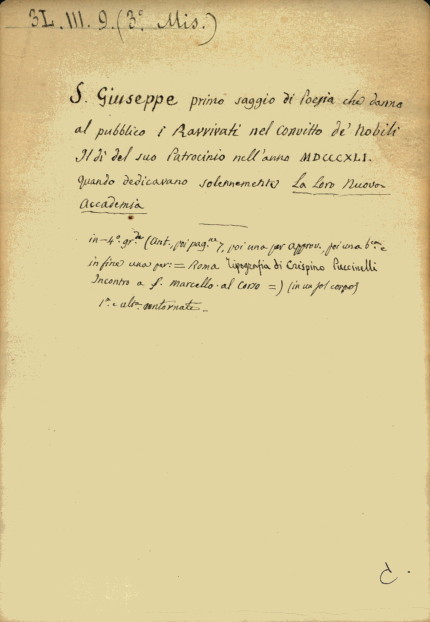 3L.III.9.(3º Mis.)
S. Giuseppe primo saggio di Poesia che danno
al pubblico i Ravvivati nel Convitto de' Nobili
Il dì del suo Patrocinio nell'anno MDCCCXLI.
quando dedicavano solennemente La Loro Nuova
Accademia
in-4º. gr.de (Ant., poi pag.ne 7, poi una per approv. poi una b.ca e
in fine una per: = Roma Tipografia di Crispino Puccinelli
Incontro a S. Marcello al Corso =) (in un sol corpo)
1ª. e ult.a contornate.